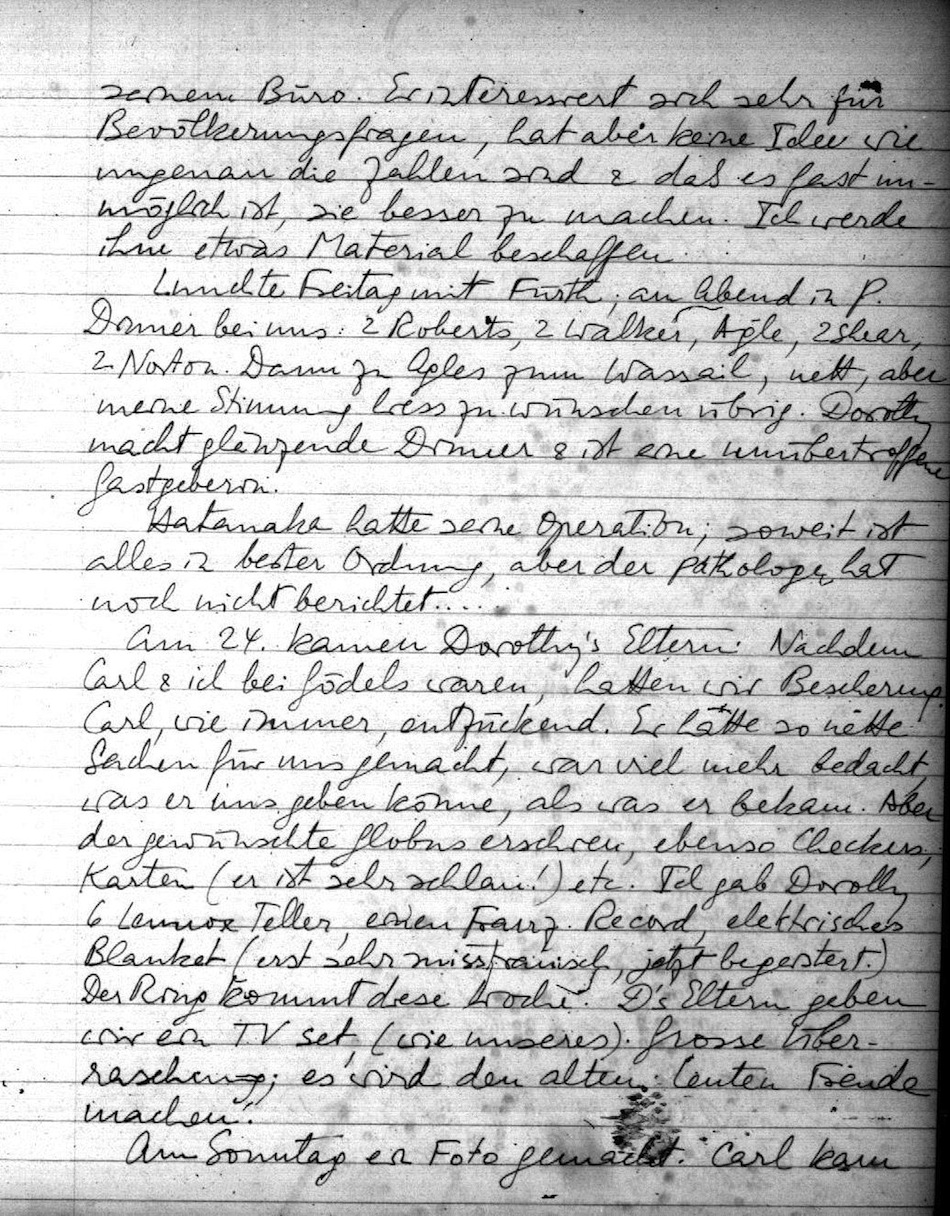 seinem Büro. Er interessiert sich sehr für
Bevölkerungsfragen, hat aber keine Idee wie
ungenau die Zahlen sind & daß es fast un-
möglich ist, sie besser zu machen. Ich werde
ihm etwas Material beschaffen.
Lunchte Freitag mit Fürth; am Abend in P.
Dinner bei uns: 2 Roberts, 2 Walker, Agle, 2 Shear,
2 Norton. Dann zu Agles zum Wassail, nett, aber
meine Stimmung liess zu wünschen übrig. Dorothy
macht glänzende Dinner & ist eine unübertroffene
Gastgeberin.
Hatanaka hatte seine Operation; soweit ist
alles in bester Ordnung, aber der Pathologe hat
noch nicht berichtet.....
Am 24. kamen Dorothy's Eltern. Nachdem
Carl & ich bei Gödels waren, hatten wir Bescherung.
Carl, wie immer, entzückend. Er hatte so nette
Sachen für uns gemacht, war viel mehr bedacht
was er uns geben könne, als was er bekam. Aber
der gewünschte Globus erschien, ebenso Checkers,
Karten (er ist sehr schlau!) etc. Ich gab Dorothy
6 Lennox Teller, einen Franz. Record, elektrisches
Blanket (erst sehr misstrauisch, jetzt begeistert.)
Der Ring kommt diese Woche. D's Eltern geben
wir ein TV set, (wie unseres). Grosse Über-
raschung; es wird den alten Leuten Freude
machen.
Am Sonntag ein Foto gemacht. Carl kam